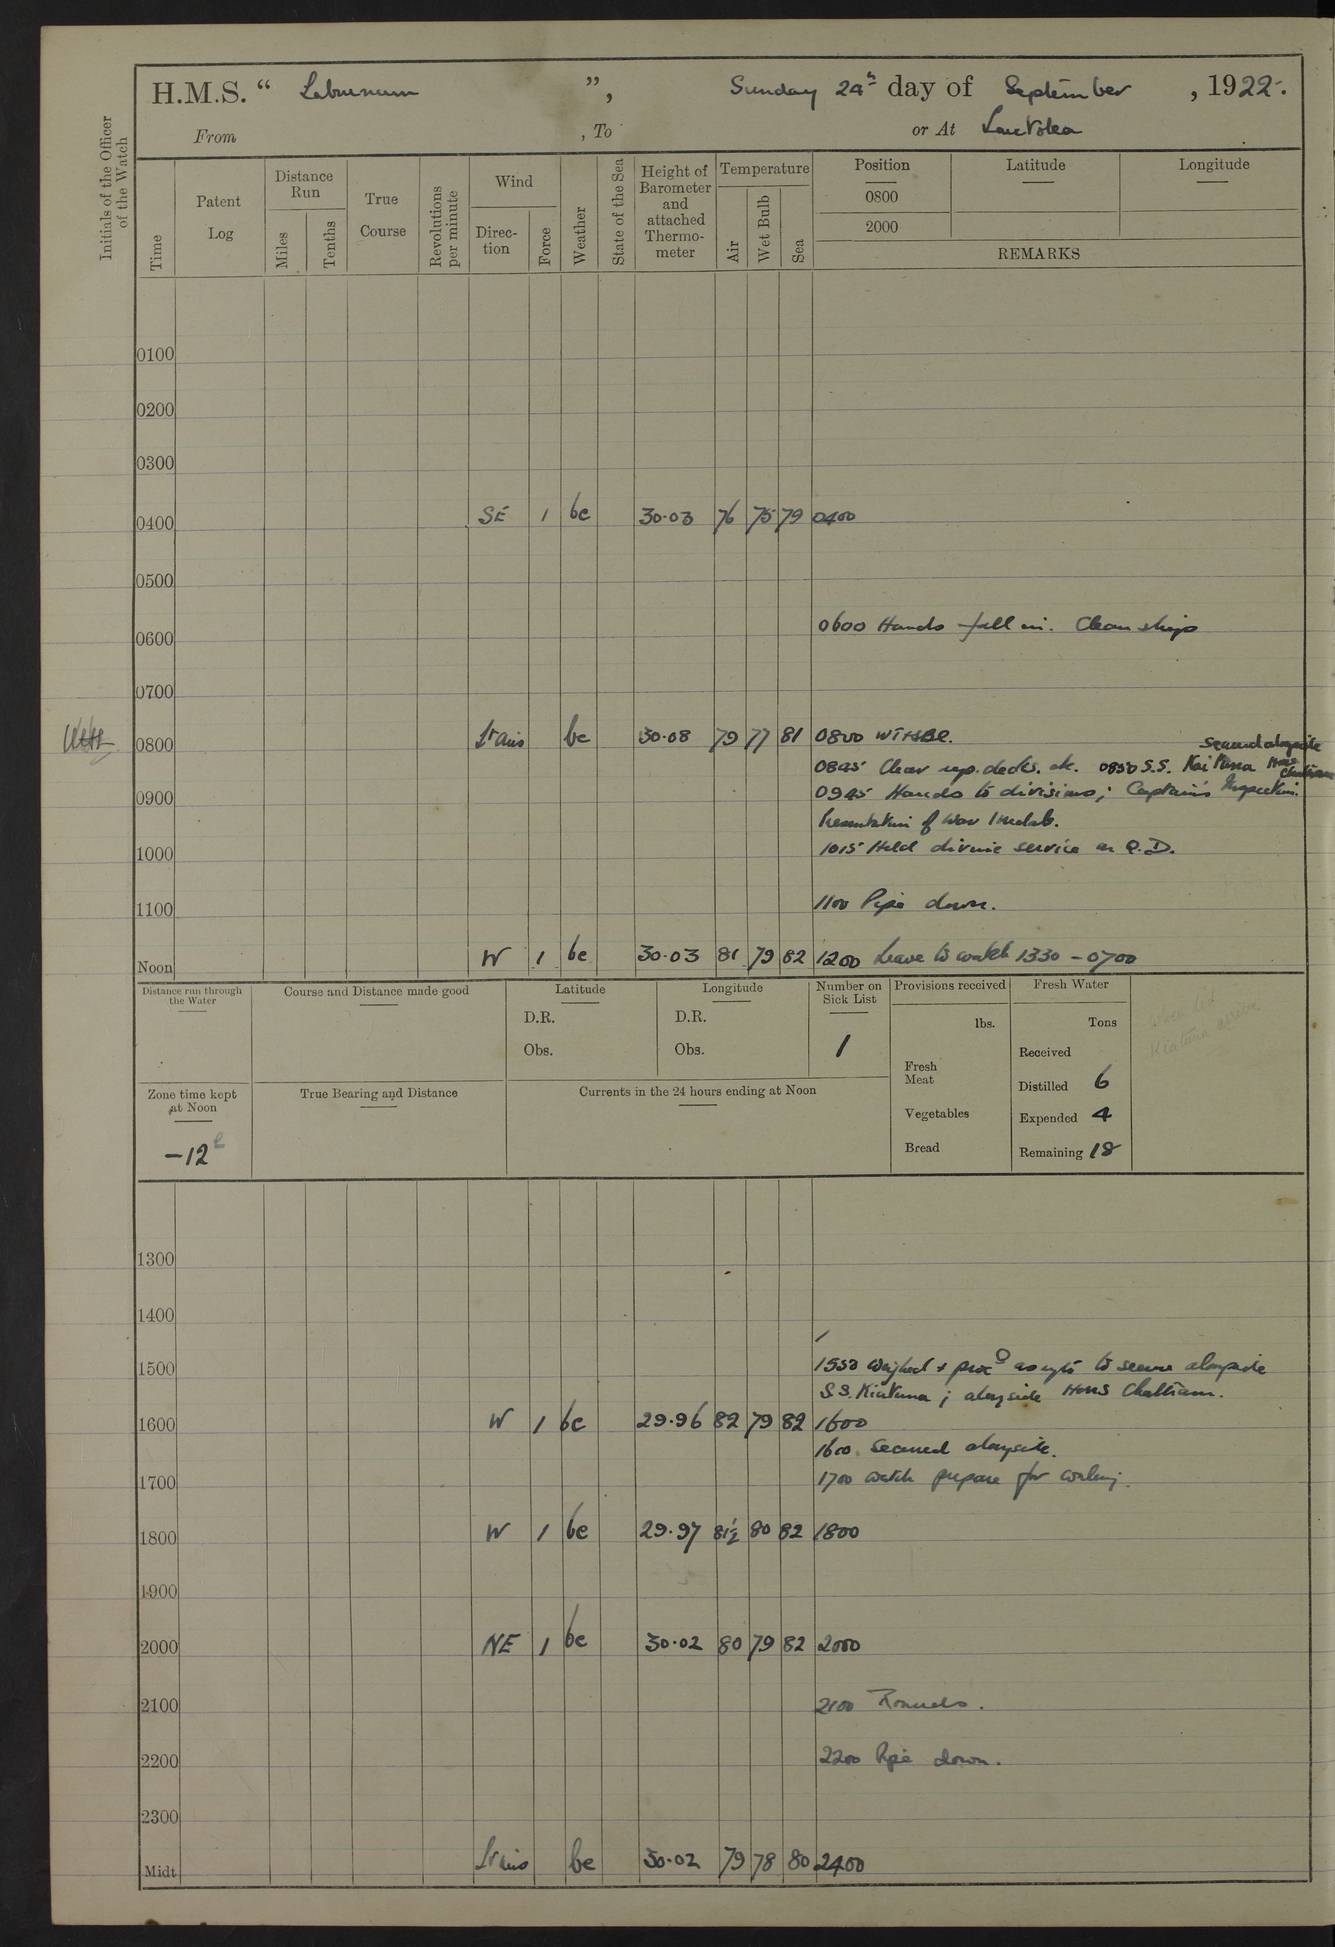 H.M.S. “ Laburnum ”, Sunday 24th day of September, 1922.
From , To or At Lautoka
Initials of the Officer of the Watch
Time
Patent Log
Distance Run
Miles
Tenths
True Course
Revolutions per minute
Wind
Direc-tion
Force
Weather
State of the Sea
Height of Barometer and attached Thermo-meter
Temperature
Air
Wet Bulb
Sea
Position
0800
2000
Latitude
Longitude
REMARKS
0100
0200
0300
0400 SE 1 bc 30.03 76 75 79 0400
0500
0600 0600 Hands fall in. Clean ship
0700
0800 Lt airs bc 30.08 79 77 81 0800
secured alongside
0845 Clear up decks. etc. 0850 S.S. Kaituna HMS Chatham
0900 0945 Hands to divisions; Captain's Inspection.
Presentation of War medals.
1000 1015 Held divine service on Q.D.
1100 1100 Pipe down.
Noon W 1 bc 30.03 81 79 82 1200 Leave to watch 1330 - 0700
Distance run through the Water
Course and Distance made good
Latitude
D.R.
Obs.
Longitude
D.R.
Obs.
Number on Sick List
1
Provisions received
lbs.
Fresh Meat
Vegetables
Bread
Fresh Water
Tons
Received
Distilled 6
Expended 4
Remaining 18
Zone time kept at Noon
-12
True Bearing and Distance
Currents in the 24 hours ending at Noon
1300
1400
1500 1550 weighed & procd as reqd to secure alongside
S.S. Kiatuna; alongside HMS Chatham.
1600 W 1 bc 29.96 82 79 82 1600
1610 secured alongside.
1700 1700 watch prepare for coaling.
1800 W 1 bc 29.97 81½ 80 82 1800
1900
2000 NE 1 bc 30.02 80 79 82 2000
2100 2100 Rounds.
2200 2200 Pipe down.
2300
Midt Lt airs bc 30.02 79 78 80 2400